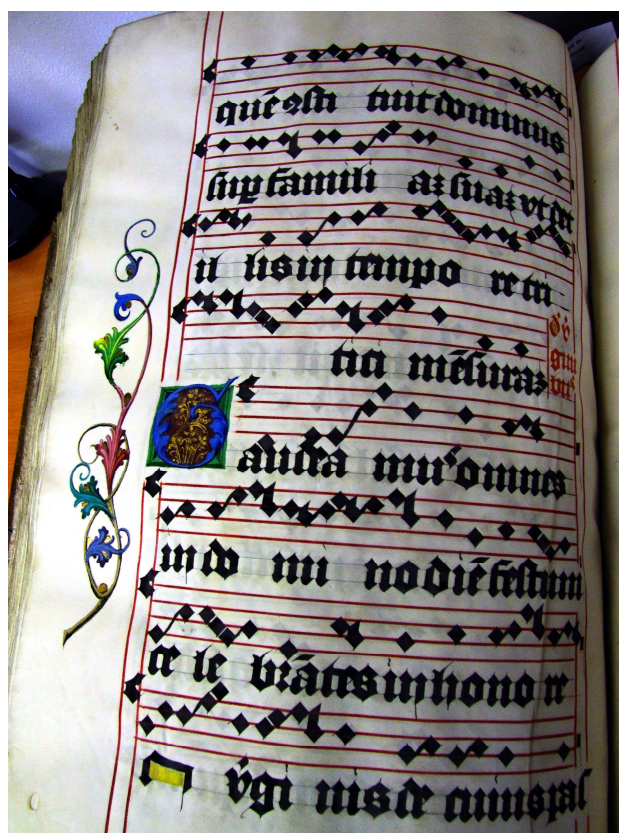 quē ɔſti tuit dominus
ſup famili aꝫ ſuaꝫ vt det
il lis in tempo re tri
tici mēſuraꝫ
audea mus omnes
in do mi no diē feſtum
ce le brātes in hono re
v̄gi nis de cuius paſ